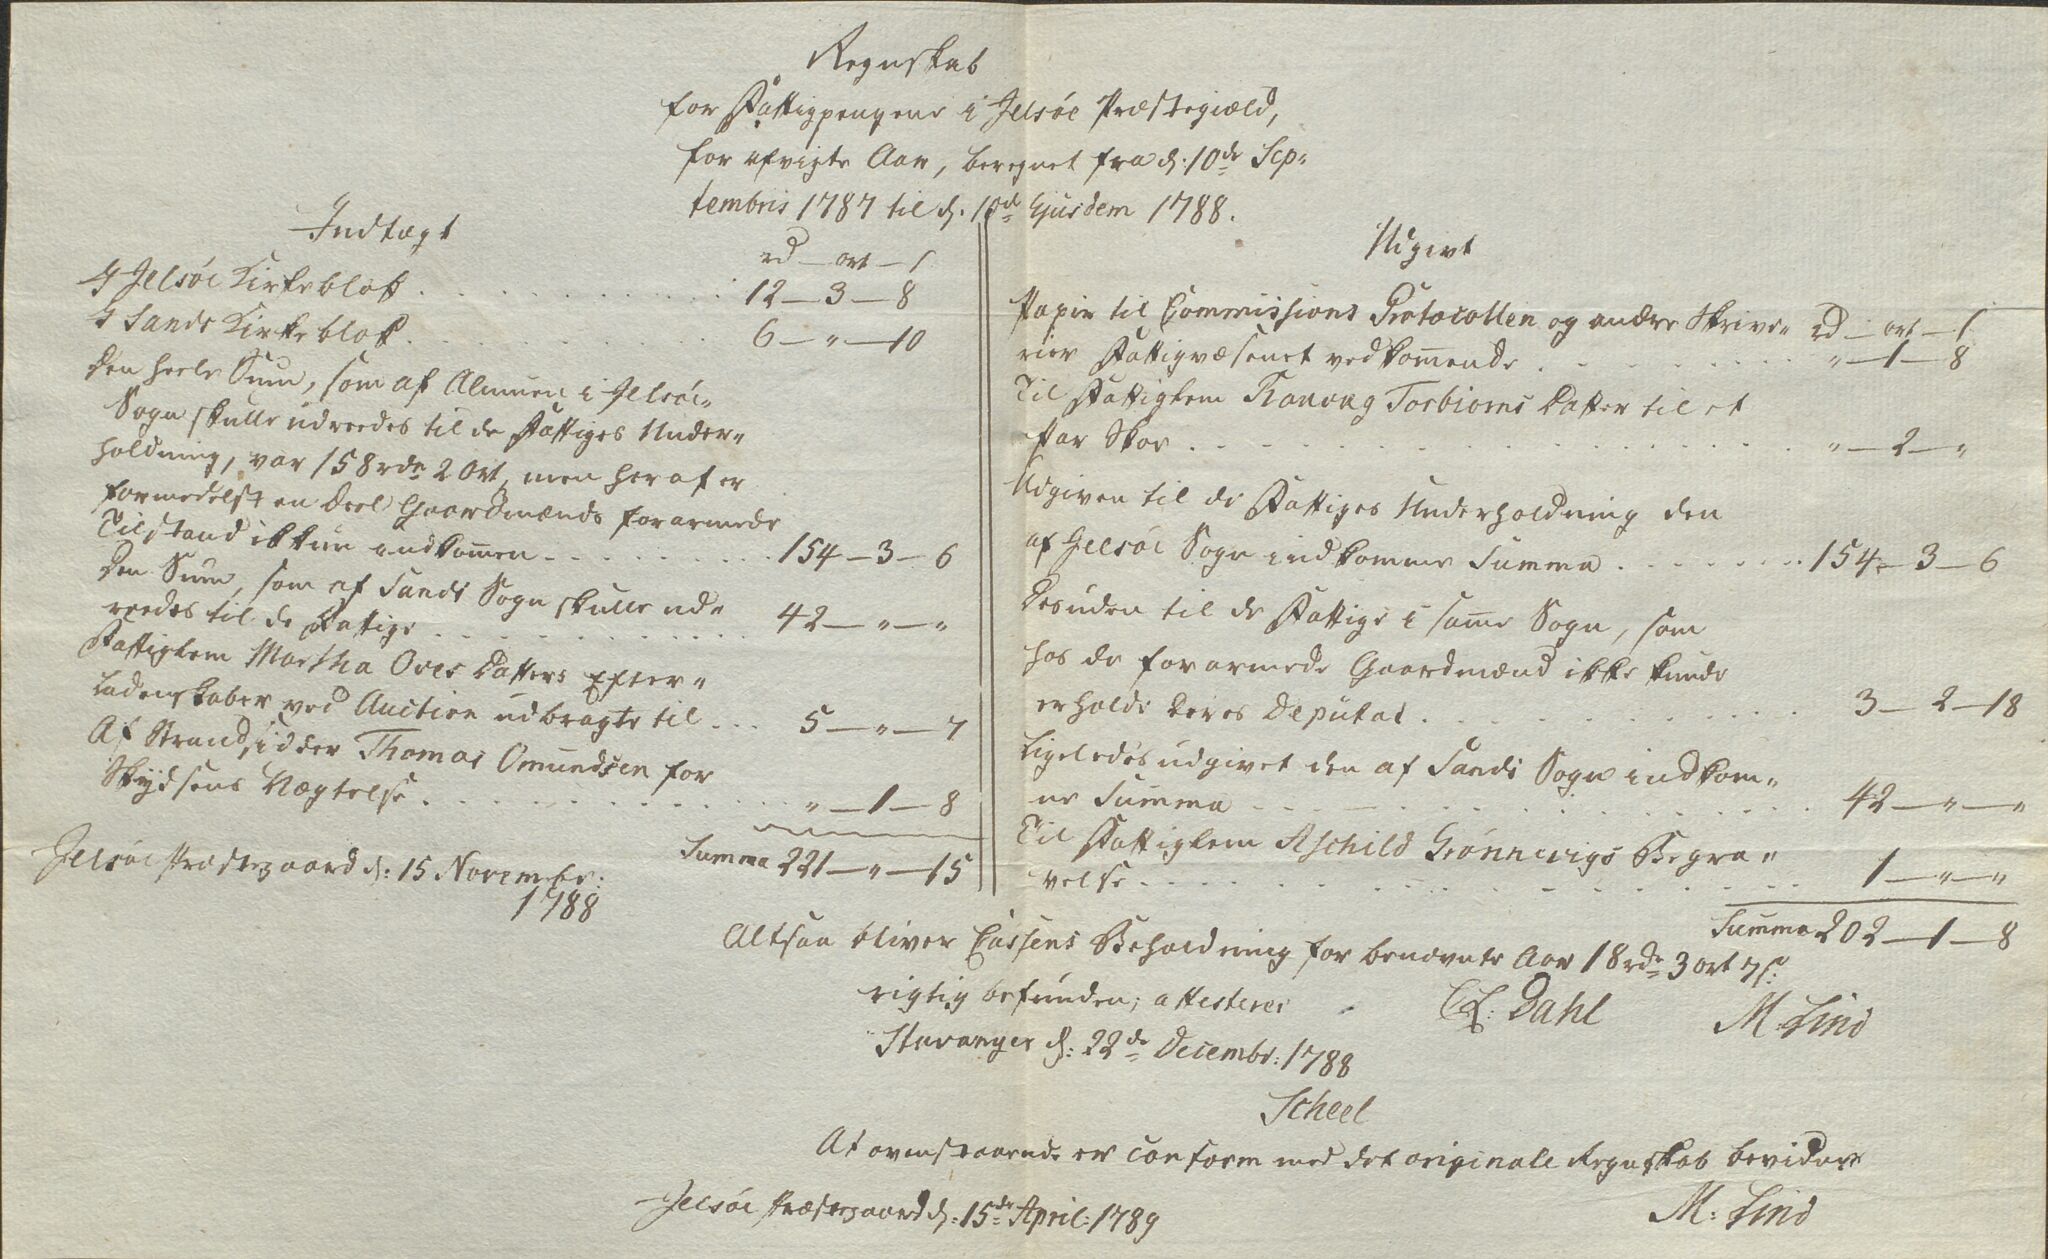 Regnskab
for Fattigpengene i Jelsøe Præstegield,
for afvigte Aar, beregnet fra d: 10de Sep-
tembris 1787 til d. 10de Ejusdem 1788.
Indtægt
rd — ort — s
I Jelsøe Kirkeblok . . . 12 — 3 — 8
I Sands Kirkeblok . . . 6 — " — 10
Den heele Sum, som af Almuen i Jelsøe
Sogn skulle udreedes til de Fattiges Under-
holdning, var 158 rdr 2 Ort, men heraf er
formedelst en Deel Gaardmænds forarmede
Tilstand ikkun indkommen . . . 154 — 3 — 6
Den Sum, som af Sands Sogn skulle ud-
reedes til de Fattige . . . 42 — " — "
Fattiglem Martha Oves Datters Efter-
ladenskaber ved Auction udbragte til . . . 5 — " — 7
Af Strandsidder Thomas Omundsen for
Skydsens Nægtelse . . . " — 1 — 8
Summa 221 — " — 15
Jelsøe Præstegaard d: 15 Novembr:
1788
Udgivt
rd — ort — s
Papir til Commissions Protocollen og andre Skrive-
rier Fattigvæsenet vedkommende . . . " — 1 — 8
Til Fattiglem Ranvug Torbiørns Datter til et
Par Skoe . . . " — 2 — "
Udgiven til de Fattiges Underholdning den
af Jelsøe Sogn indkomne Summa . . . 154 — 3 — 6
Desuden til de Fattige i samme Sogn, som
hos de forarmede Gaardmænd ikke kunde
erholde deres Deputat . . . 3 — 2 — 18
Ligeledes udgivet den af Sands Sogn indkom-
ne Summa . . . 42 — " — "
Til Fattiglem Aschild Grønnevigs Begra-
velse . . . 1 — " — "
Summa 202 — 1 — 8
Altsaa bliver Cassens Beholdning for benævnte Aar 18 rdr 3 ort 7 s:
C L: Dahl M: Lind
rigtig befunden, attesterer
Stavanger d: 22de Decembr: 1788
Scheel
At ovenstaaende er conform med det originale Regnskab bevidner
M: Lind
Jelsøe Præstegaard d: 15de April: 1789